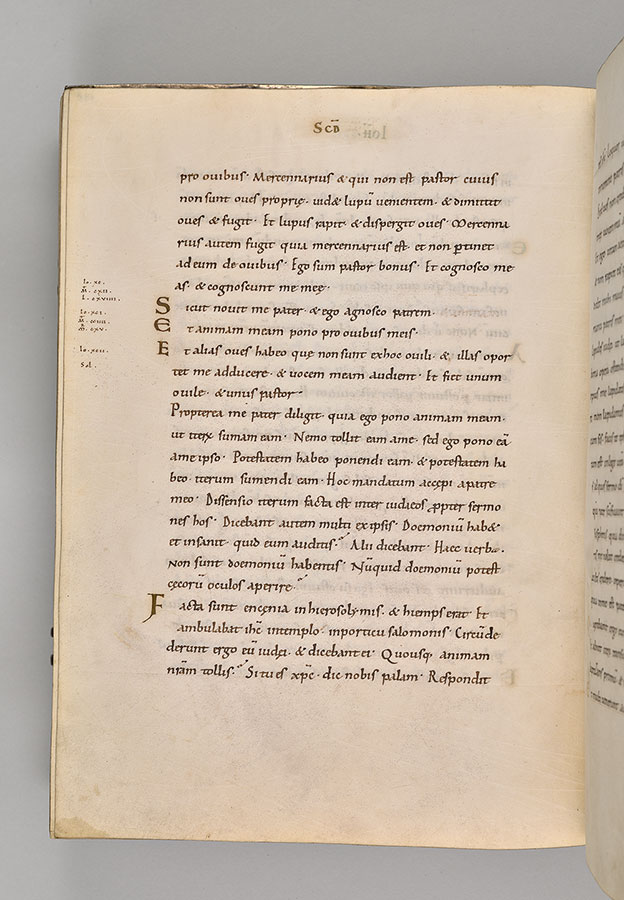 SCD̄
pro ouibus· Mercennarius & qui non est pastor cuius
non sunt oues proprię· uid& lupū uenientem· & dimittit
oues & fugit· Et lupus rapit· & dispergit oues· Mercenna
rius autem fugit quia mercennarius est· et non ꝑtinet
ad eum de ouibus· Ego sum pastor bonus· Et cognosco me
as· & cognoscunt me męę·
Io. xc.
M̄. cxii.
L. cxviiii.
Sicut nouit me pater· & ego agnosco patrem·
Io. xci.
Et animam meam pono pro ouibus meis·
Io. xcii.
Sol.
Et alias oues habeo quę non sunt ex hoc ouili· & illas opor
tet me adducere· & uocem meam audient· Et fi& unum
ouile· & unus pastor·
Propterea me pater diligit· quia ego pono animam meam·
ut iterū sumam eam· Nemo tollit eam a me· sed ego pono eā
a me ipso· Potestatem habeo ponendi eam· & potestatem ha
beo· iterum sumendi eam· Hoc mandatum accepi a patre
meo· Dissensio iterum facta est inter iudaeos ꝓpter sermo
nes hos· Dicebant autem multi ex ipsis· Doemoniū hab&
et insanit· quid eum auditis· Alii dicebant· Haec uerba·
Non sunt doemoniū habentis· Nūquid doemoniū potest
cęcorū oculos aperire·
Facta sunt encęnia in hierosolymis· & hiemps erat· Et
ambulabat ihc̄ in templo· in porticu salomonis· Circūde
derunt ergo eū iudęi· & dicebant ei· Quousq· animam
nr̄am tollis· Si tu es xpc̄· dic nobis palam· Respondit